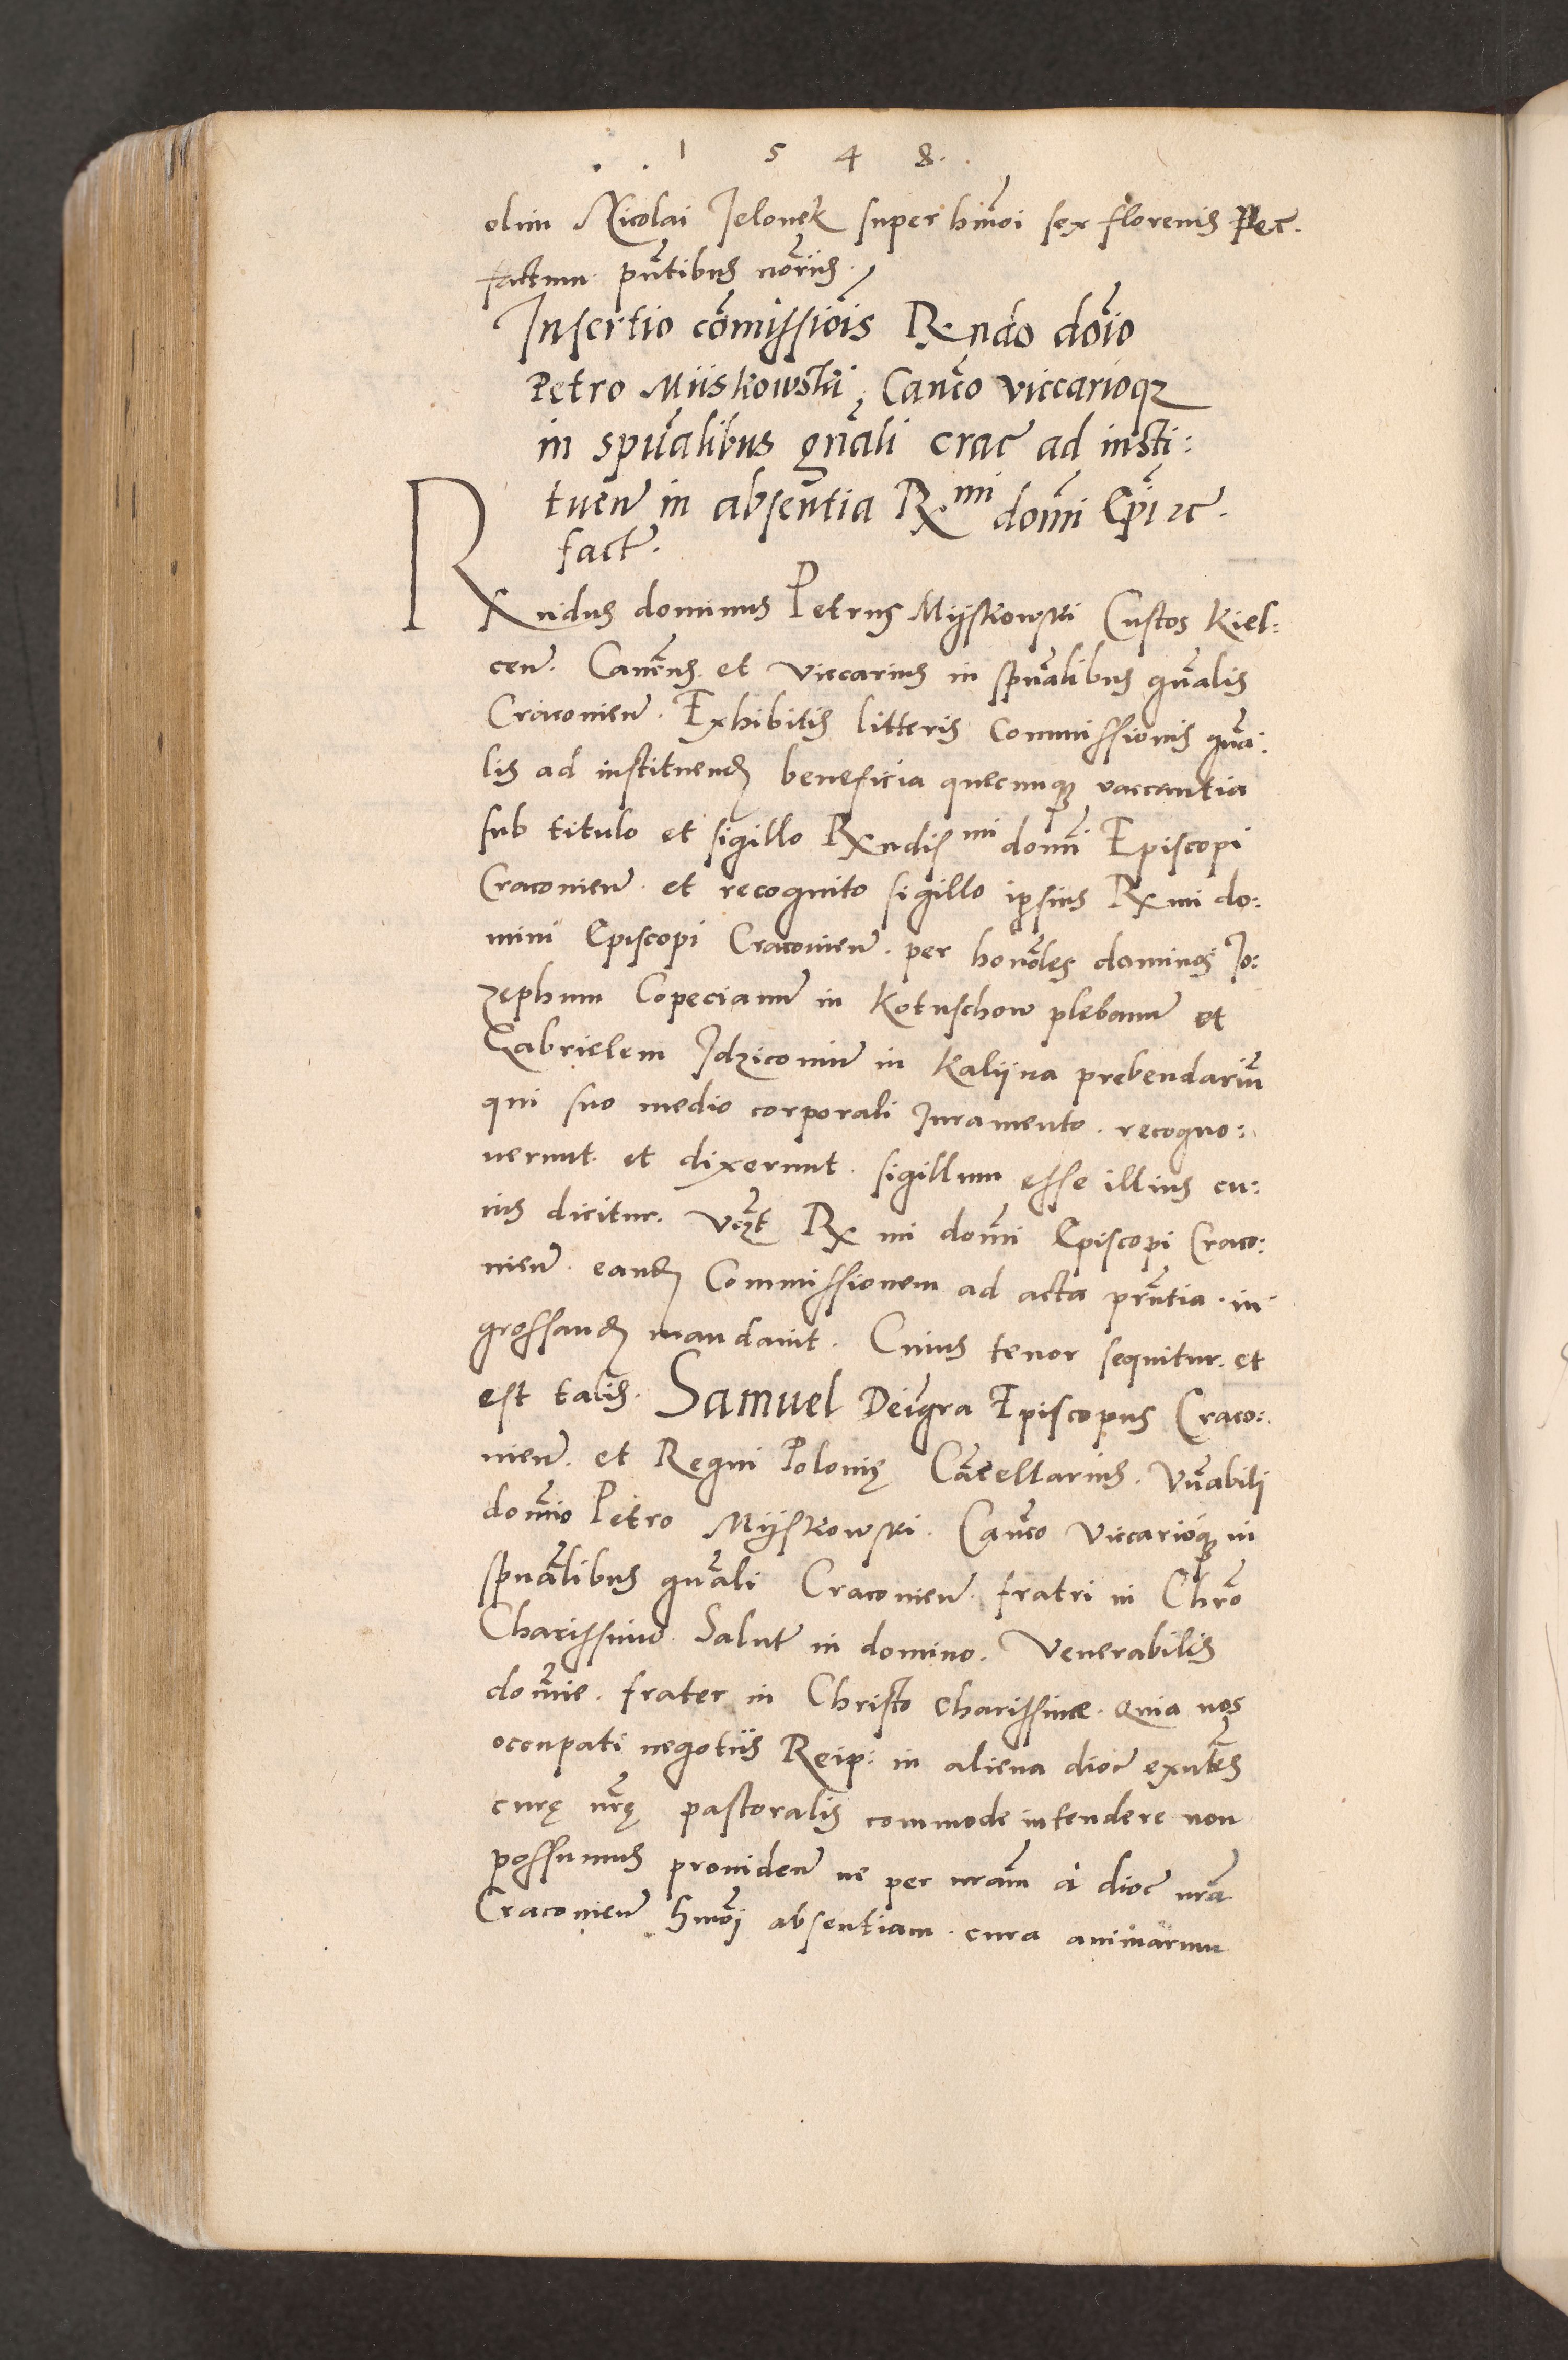 1548.
olim Nicolai Jelonek super hm̃oi sex florenis Pet.
factum p̃ntibus nõriis.
Insertio cõmissiõis Rx̃ndo dõio
Petro Miiskowski Cañco viccarioq̃
in spũalibus gñali crac̃ ad insti:
tuen̄ in absentia Rx mi domñi Ep̃i zc̃.
fact̄.
Rx̃ndus dominus Petrus Mÿskowski Custos Kiel:
cen̄. Canc̃us et viccarius in spũalibus gñalis
Cracovien̄. Exhibitis litteris Commissionis gña:
lis ad instituend̄ beneficia quecunq̃ vaccantia
sub titulo et sigillo Rxndis mi domñi Episcopi
Cracovien̄. et recognito sigillo ipsius Rxmi do:
mini Episcopi Cracovien̄. per honõles dominos Jo:
zephum Copecianum̄ in Kotuschow plebanum̄ et
Gabrielem Idziconium̄ in Kaliina prebendariũ
qui suo medio corporali Juramento. recogno:
uerunt. et dixerunt. sigillum esse illius cu:
ius dicitur. vcz̃t Rx mi domñi Episcopi Craco:
vien̄. eand̄ Commissionem ad acta prñtia. in
grossand̄ mandauit. Cuius tenor sequitur. et
est talis. Samuel Dei gr̃a Episcopus Craco:
vien̄. et Regni Polonię Cãcellarius. Vñabili
domñio Petro Mÿskowski. Cañco viccarioq̃ in
spũalibus gñali Cracovien̄. fratri in Chrõ
Charissimo. Salut̄ in domino. Venerabilis
domñie. frater in Christo charissime. Quia nos
occupati negotiis Reip: in aliena dioc̄ exñtẽs
curę nr̃ę pastoralis commode intendere non
possumus prouiden̄ ne per nr̃am á dioc̄ nr̃a
Cracovien̄ hm̃oi absentiam. cura animarum